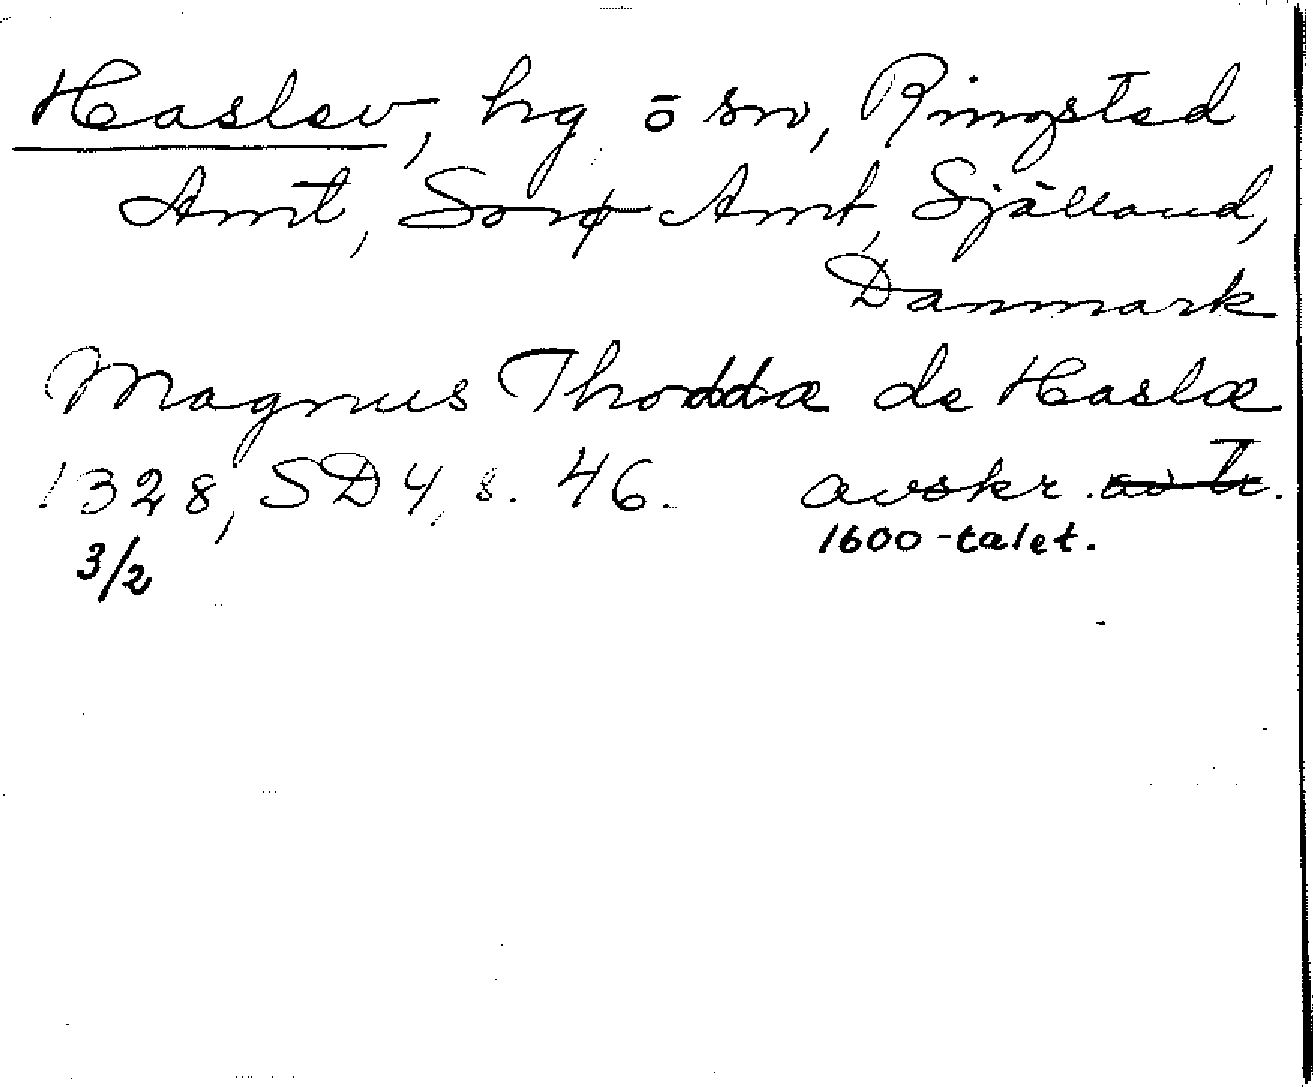 Haslev, hg ō sn, Ringsted
Amt, Sorø Amt, Själland,
Danmark
Magnus Thoddæ de Haslæ
1328, SD 4, s. 46. avskr. av Tr.
3/2 1600-talet.